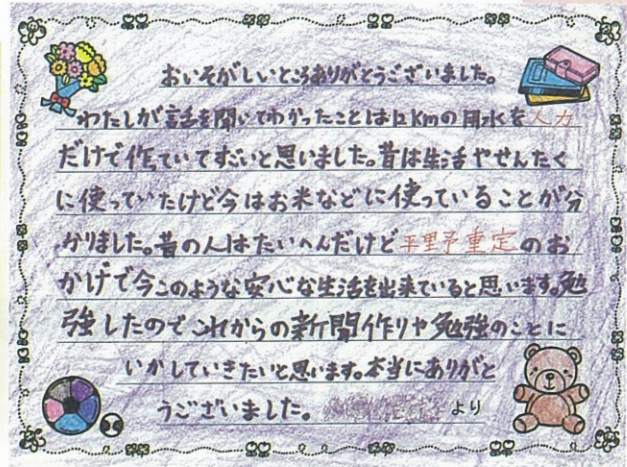 おいそがしいところありがとうございました。
わたしが話を聞いてわかったことは12kmの用水を人力
だけで作ていてすごいと思いました。昔は生活やせんたく
に使っていたけど今はお米などに使っていることが分
かりました。昔の人はたいへんだけど平野重定のお
かげで今このような安心な生活を出来ていると思います。勉
強したのでこれからの新聞作りや勉強のことに
いかしていきたいと思います。本当にありがと
うございました。
より